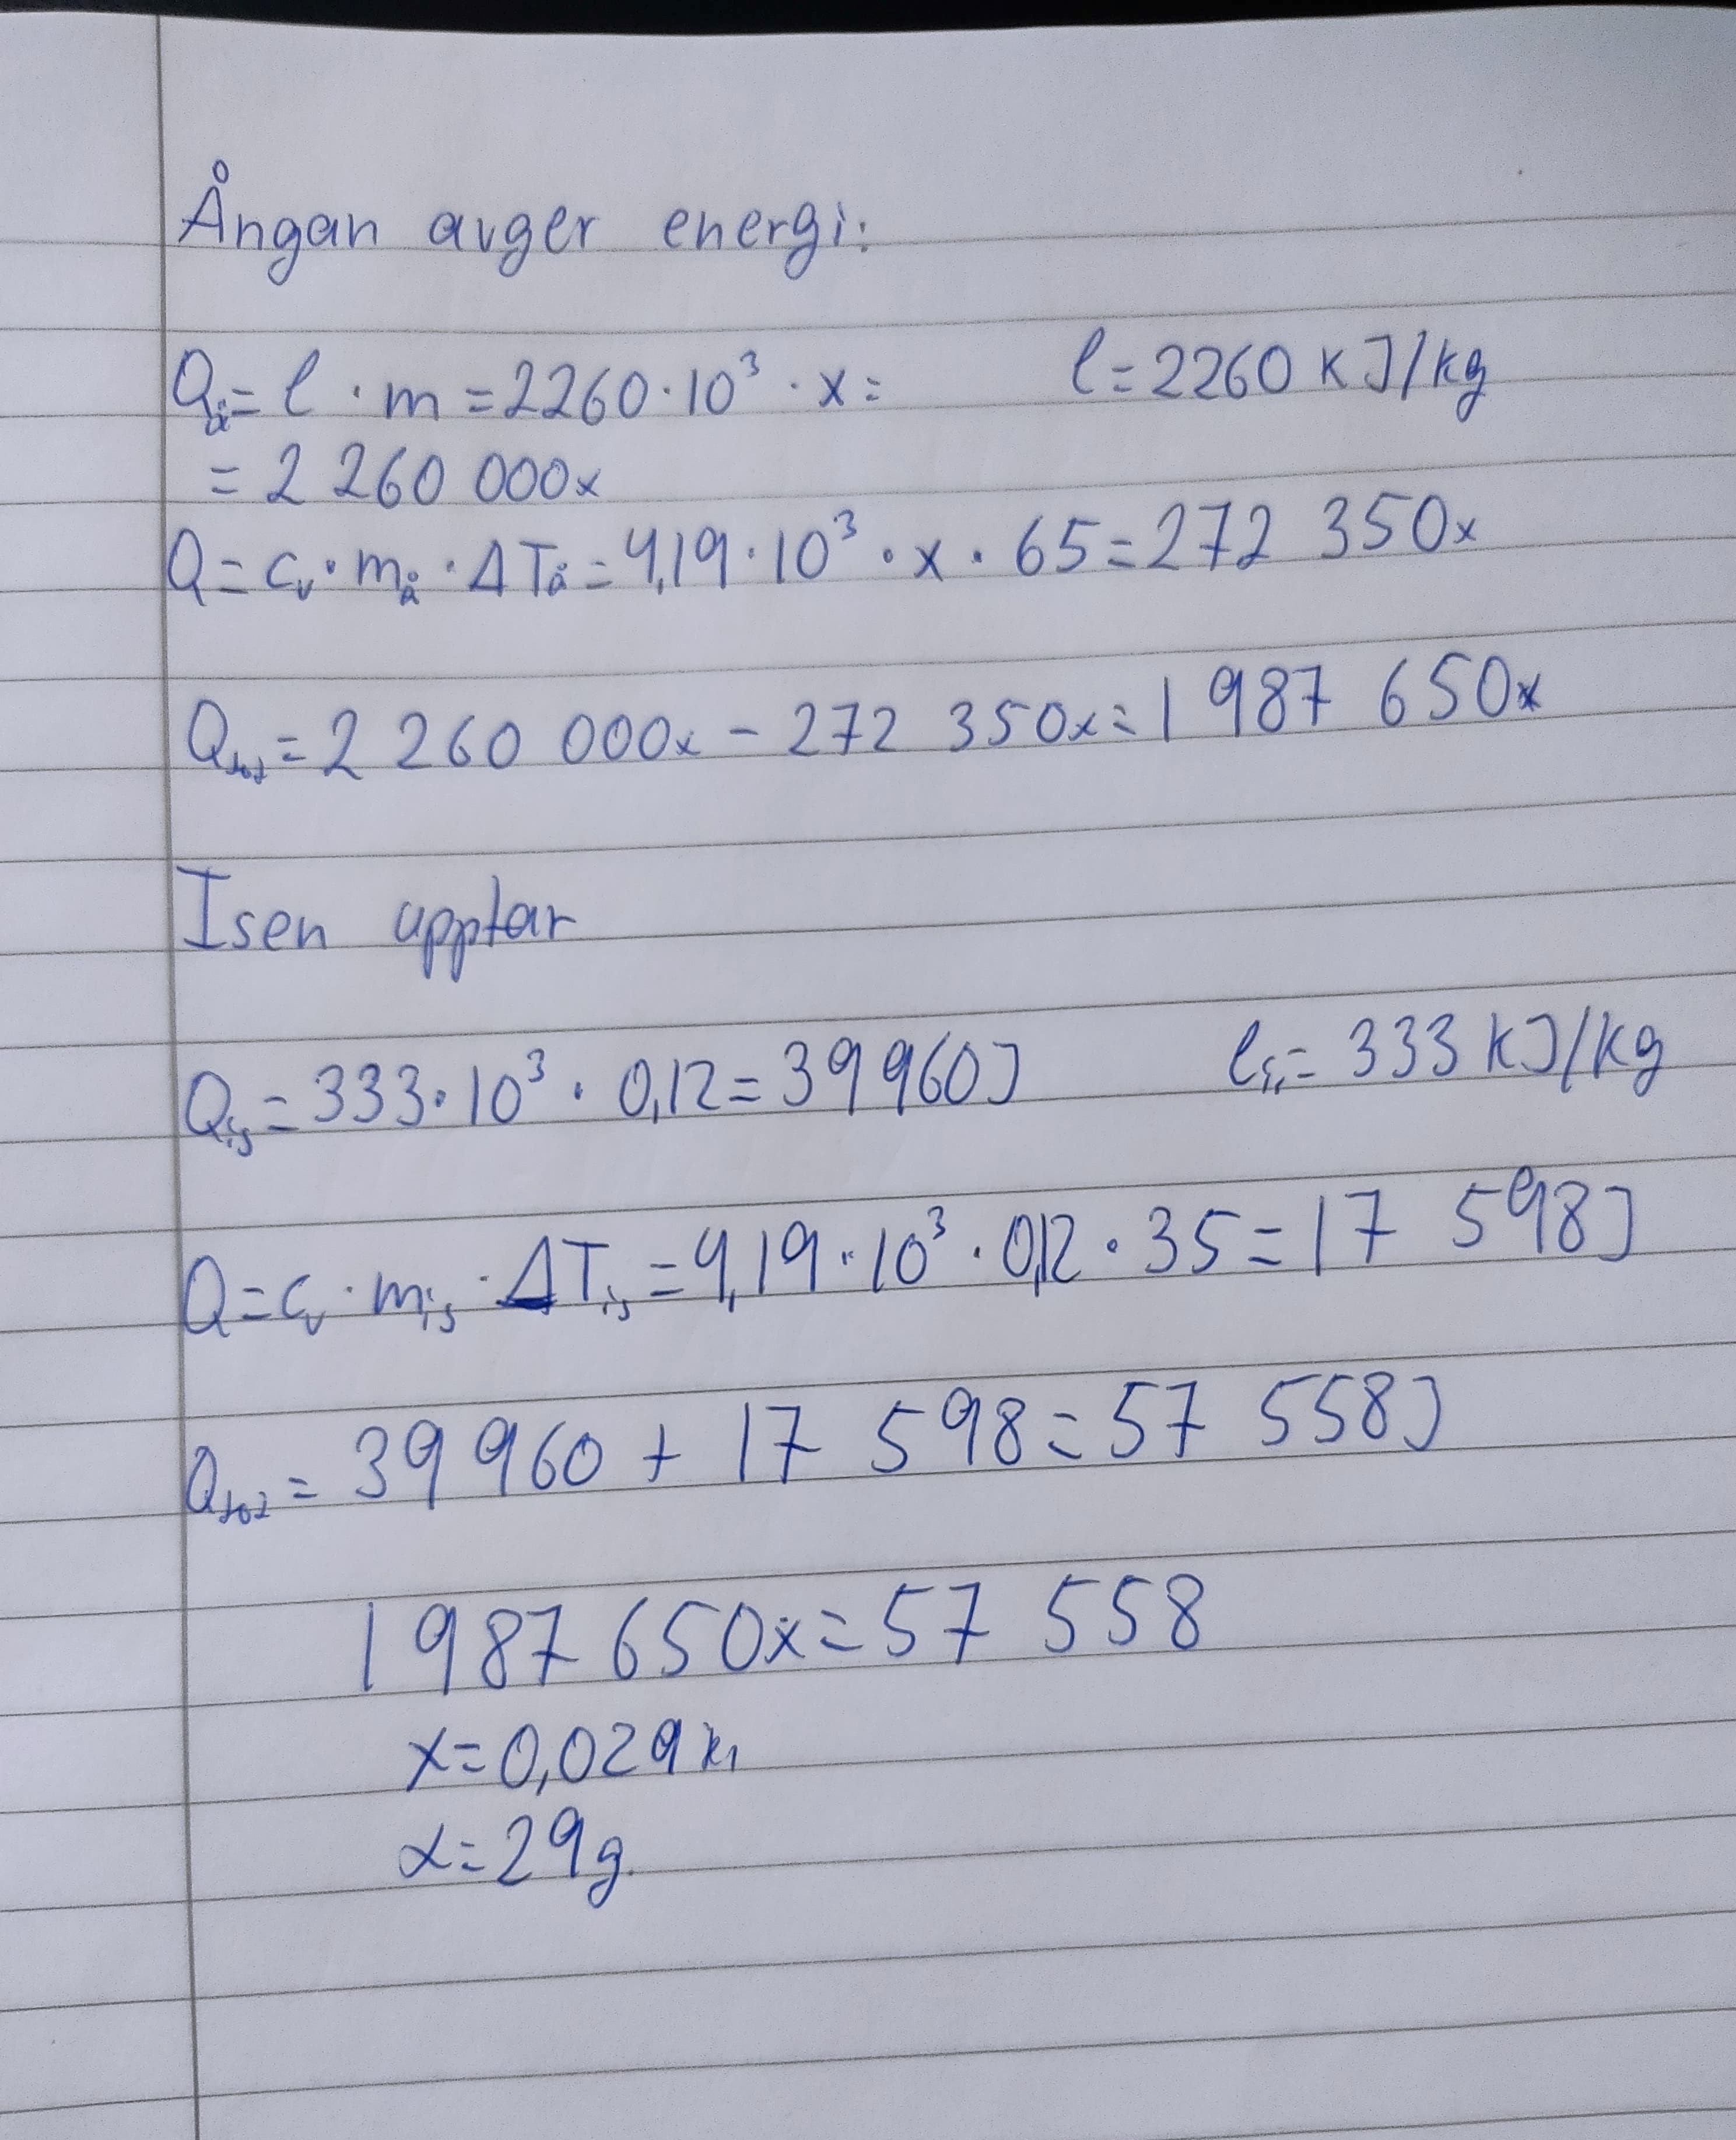 Ångan avger energi:
Qå = l · m = 2260 · 10³ · x = l = 2260 kJ/kg
= 2 260 000x
Q = cv · må · ΔTå = 4,19 · 10³ · x · 65 = 272 350x
Qtot = 2 260 000x - 272 350x = 1 987 650x
Isen upptar
Qis = 333 · 10³ · 0,12 = 39 960 J lis = 333 kJ/kg
Q = cv · mis · ΔTis = 4,19 · 10³ · 0,12 · 35 = 17 598 J
Qtot = 39 960 + 17 598 = 57 558 J
1 987 650x = 57 558
x = 0,029 kg
x = 29 g.